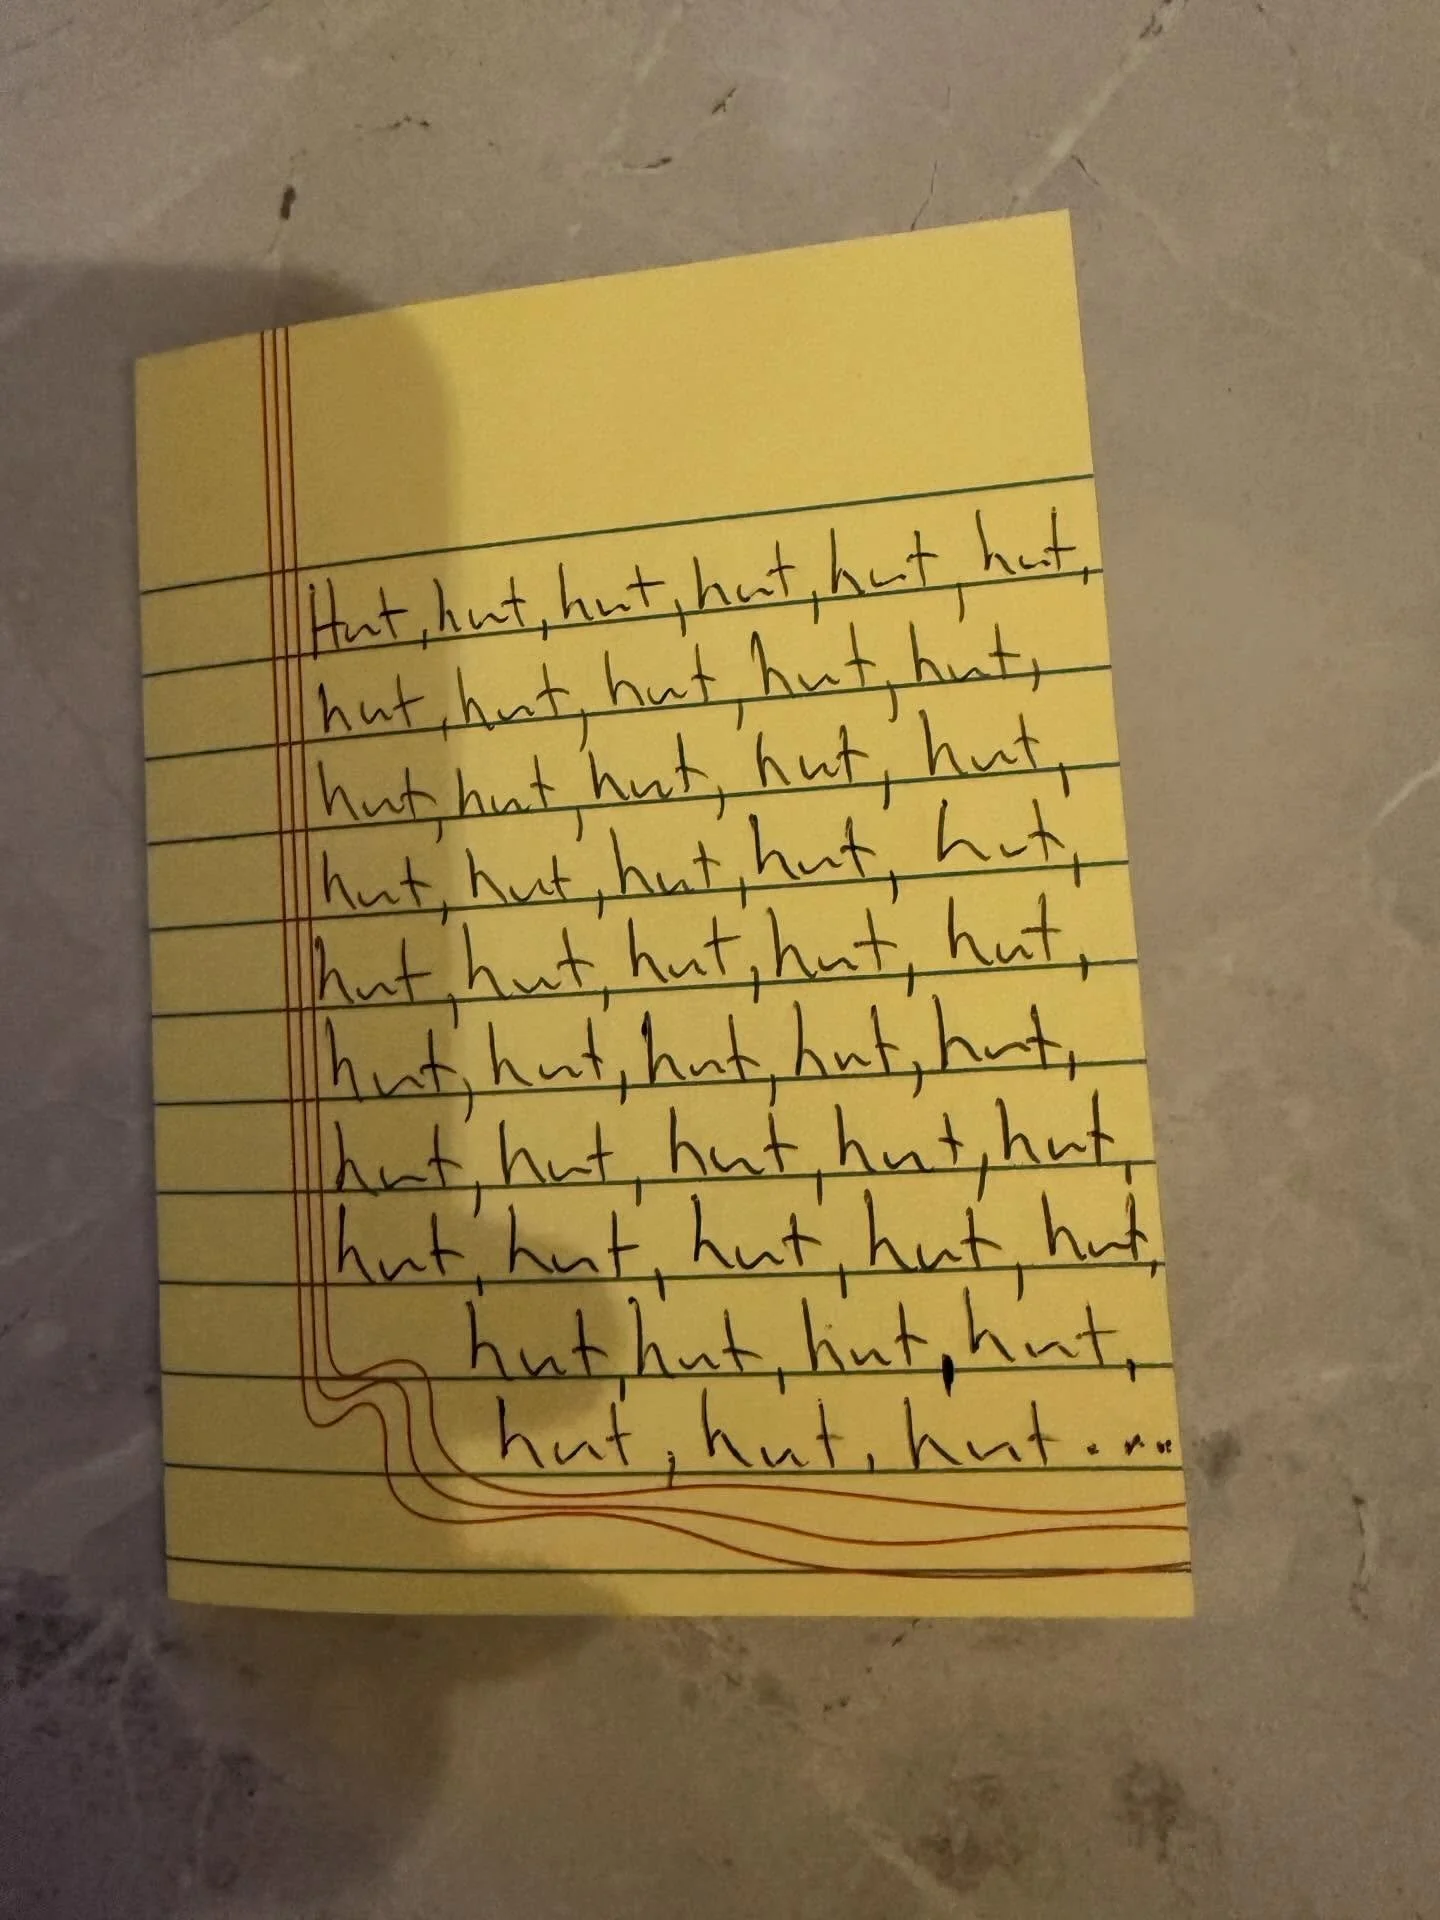 Hut, hut, hut, hut, hut, hut,
hut, hut, hut, hut, hut,
hut, hut, hut, hut, hut,
hut, hut, hut, hut, hut,
hut, hut, hut, hut, hut,
hut, hut, hut, hut, hut,
hut, hut, hut, hut, hut,
hut, hut, hut, hut, hut,
hut, hut, hut, hut,
hut, hut, hut....